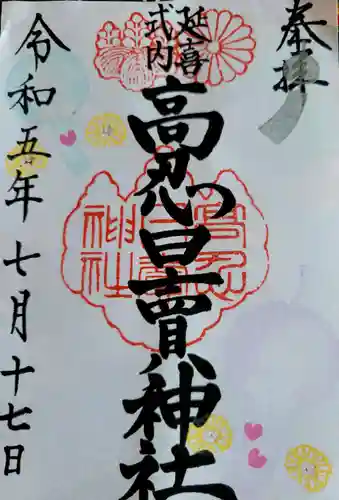 奉拝
延喜
式内
高忍日賣神社
令和五年七月十七日